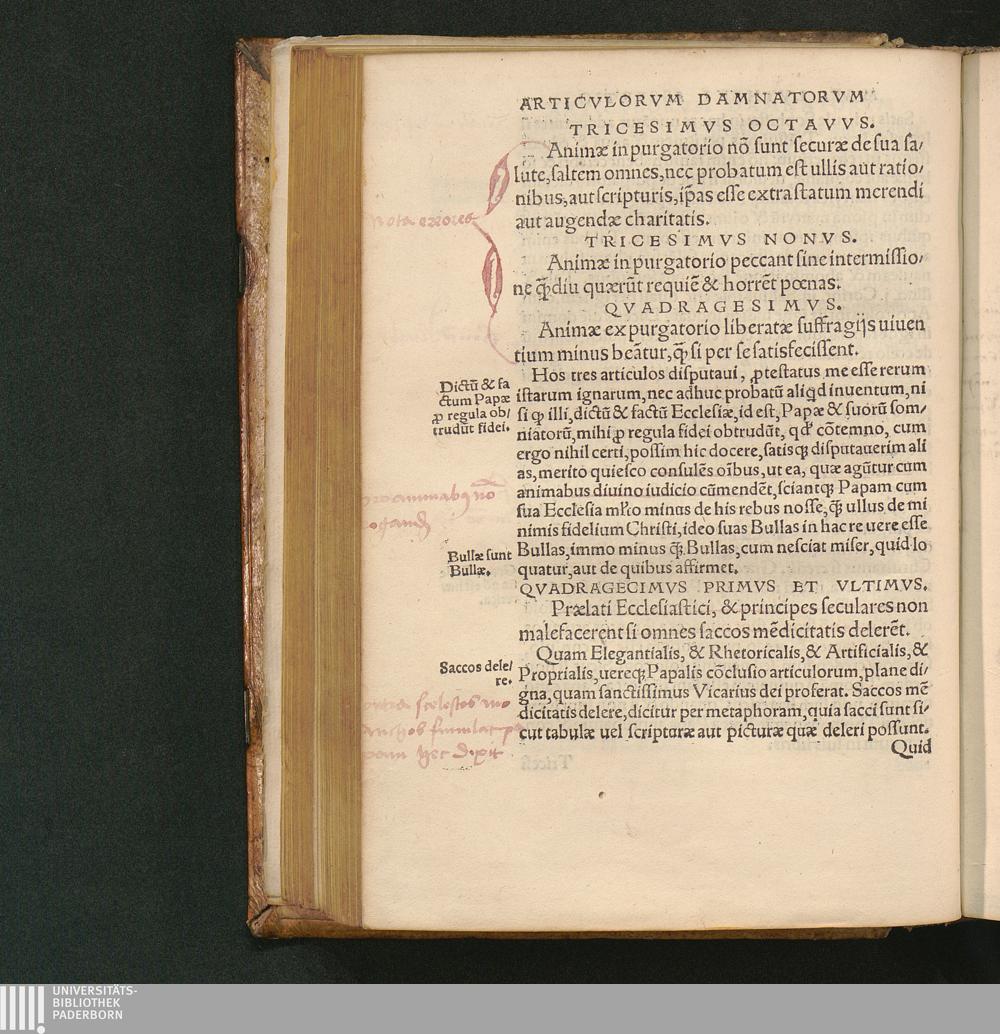 ARTICVLORVM DAMNATORVM
TRICESIMVS OCTAVVS.
Animæ in purgatorio nō sunt securæ de sua sa/
lute, saltem omnes, nec probatum est ullis aut ratio/
nibus, aut scripturis, ip̄as esse extra statum merendi
aut augendæ charitatis.
Nota errores
TRICESIMVS NONVS.
Animæ in purgatorio peccant sine intermissio/
ne q̄̃diu quærūt requiē & horrēt pœnas.
QVADRAGESIMVS.
Animæ ex purgatorio liberatæ suffragijs uiuen
tium minus beātur, q̄̃ si per se satisfecissent.
Hos tres articulos disputaui, ꝓtestatus me esse rerum
istarum ignarum, nec adhuc probatū aliqd inuentum, ni
si qꝫ illi, dictū & factū Ecclesiæ, id est, Papæ & suorū som/
niatorū, mihi ꝓ regula fidei obtrudūt, qd' cōtemno, cum
ergo nihil certi, possim hic docere, satisqꝫ disputauerim ali
as, merito quiesco consulēs oībus, ut ea, quæ agūtur cum
animabus diuino iudicio cūmendēt, sciantqꝫ Papam cum
sua Ecclesia ml̄to minus de his rebus nosse, q̄̃ ullus de mi
nimis fidelium Christi, ideo suas Bullas in hac re uere esse
Bullas, immo minus q̄̃ Bullas, cum nesciat miser, quid lo
quatur, aut de quibus affirmet.
Dictū & fa
ctum Papæ
ꝓ regula ob/
trudūt fidei.
animabꝫ nō
Bullæ sunt
Bullæ.
QVADRAGECIMVS PRIMVS ET VLTIMVS.
Prælati Ecclesiastici, & principes seculares non
malefacerent si omnes saccos mēdicitatis delerēt.
Quam Elegantialis, & Rhetoricalis, & Artificialis, &
Proprialis, uereqꝫ Papalis cōclusio articulorum, plane di/
gna, quam sanctissimus Vicarius dei proferat. Saccos mē
dicitatis delere, dicitur per metaphoram, quia sacci sunt si/
cut tabulæ uel scripturæ aut picturæ quæ deleri possunt.
Saccos dele/
re.
scelestos mo
hec dixit
Quid
UNIVERSITÄTS-
BIBLIOTHEK
PADERBORN